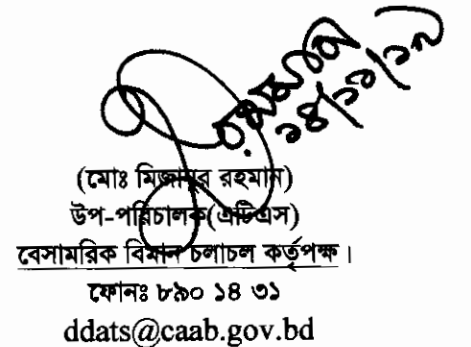 ১৪/১১/১৭
(মোঃ মিজানুর রহমান)
উপ-পরিচালক(এটিএস)
বেসামরিক বিমান চলাচল কর্তৃপক্ষ।
ফোনঃ ৮৯০ ১৪ ৩১
ddats@caab.gov.bd